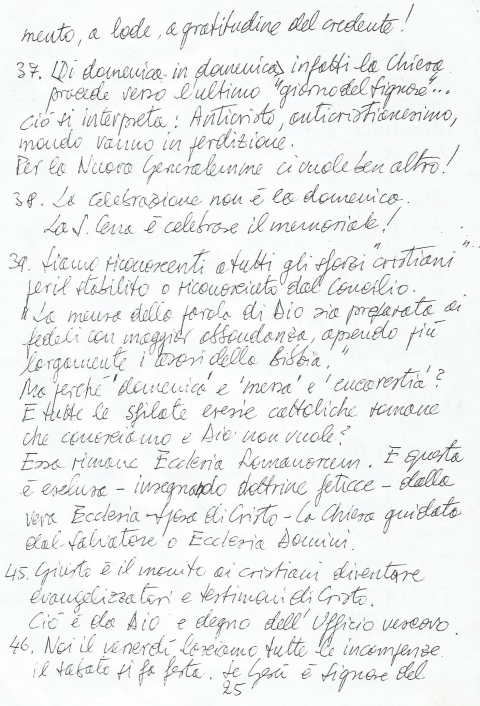 mento, a lode, a gratitudine del credente!
37. Di domenica in domenica, infatti la Chiesa
procede verso l'ultimo "giorno del Signore"...
Ciò si interpreta: Anticristo, anticristianesimo,
mondo vanno in perdizione.
Per la Nuova Gerusalemme ci vuole ben altro!
38. La celebrazione non è la domenica.
La S. Cena è celebrare il memoriale!
39. Siamo riconoscenti a tutti gli sforzi "cristiani"
per il stabilito o riconosciuto dal Concilio.
"La mensa della parola di Dio sia preparata ai
fedeli con maggior abbondanza, aprendo più
largamente i tesori della Bibbia."
Ma perché 'domenica' e 'messa' e 'eucarestia'?
E tutte le sfilate eresie cattoliche romane
che conosciamo e Dio non vuole?
Essa rimane Ecclesia Romanorum. E questa
è esclusa - insegnando dottrine feticce - dalla
vera Ecclesia - Sposa di Cristo - La Chiesa guidata
dal Salvatore o Ecclesia Domini.
45. Giusto è il monito ai cristiani diventare
evangelizzatori e testimoni di Cristo.
Ciò è da Dio e degno dell'Ufficio vescovo.
46. Noi il venerdì lasciamo tutte le incombenze
il sabato si fa festa. Se Gesù è Signore del
25